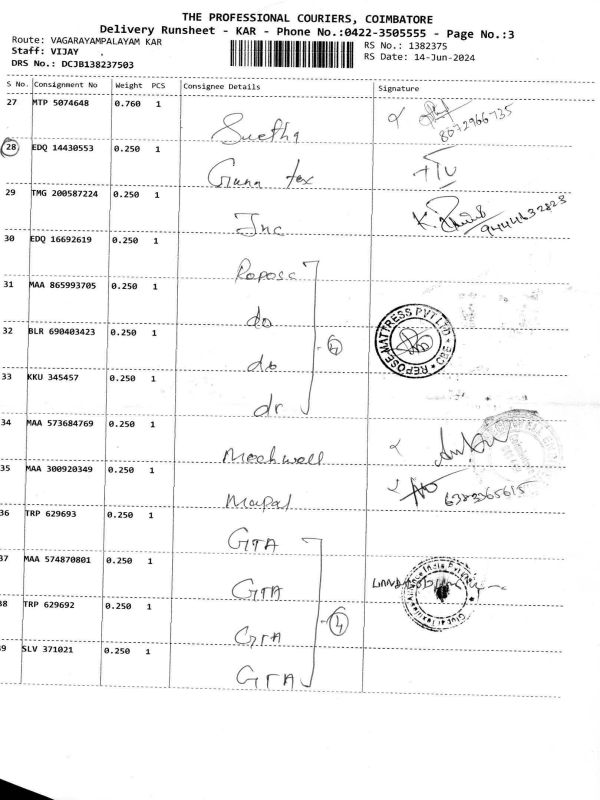 THE PROFESSIONAL COURIERS, COIMBATORE
Delivery Runsheet - KAR - Phone No.:0422-3505555 - Page No.:3
Route: VAGARAYAMPALAYAM KAR
RS No.: 1382375
Staff: VIJAY
RS Date: 14-Jun-2024
DRS No.: DCJB138237503
S No. Consignment No Weight PCS Consignee Details Signature
27 MTP 5074648 0.760 1
8072966735
28 EDQ 14430553 0.250 1 Guna tex
29 TMG 200587224 0.250 1 Inc
9444632823
30 EDQ 16692619 0.250 1 Repose
31 MAA 865993705 0.250 1 do
32 BLR 690403423 0.250 1 do
4
REPOSE MATTRESS PVT LTD CBE
33 KKU 345457 0.250 1
34 MAA 573684769 0.250 1 Mechwell
35 MAA 300920349 0.250 1 Mapal
6383365615
36 TRP 629693 0.250 1 GTA
37 MAA 574870801 0.250 1 GTA
38 TRP 629692 0.250 1 GTA
4
39 SLV 371021 0.250 1 GTA